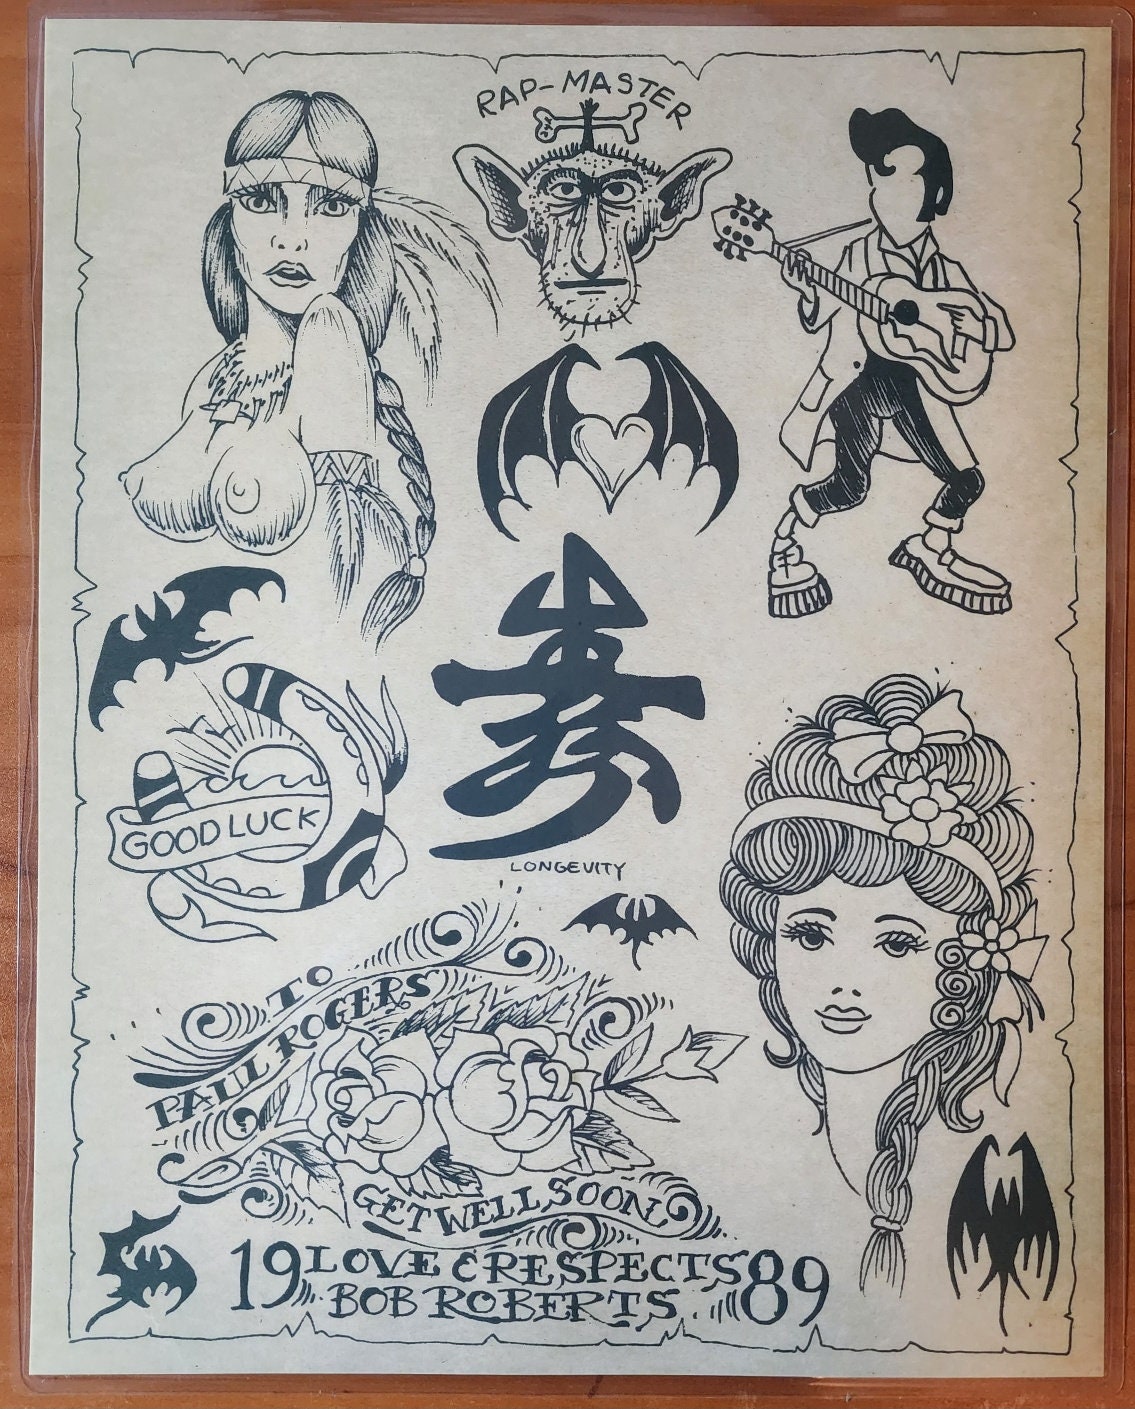 RAP-MASTER
GOOD LUCK
壽
LONGEVITY
TO
PAUL ROGERS
GET WELL SOON
19 LOVE & RESPECTS 89
BOB ROBERTS